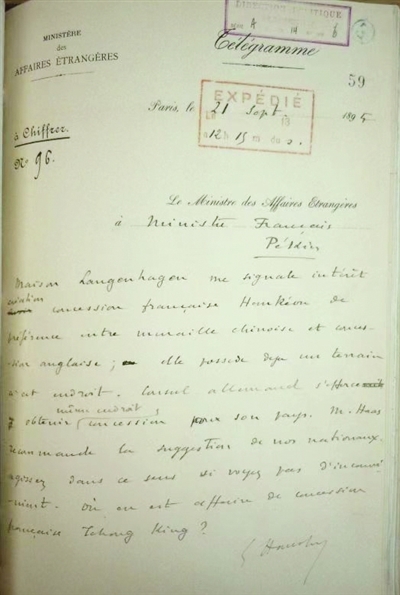 MINISTÈRE
des
AFFAIRES ÉTRANGÈRES
DIRECTION POLITIQUE
Télégramme
59
EXPÉDIÉ
Paris, le 21 Sept 1895
à Chiffrer
12 h 15 m du s.
N° 96.
Le Ministre des Affaires Etrangères
à Ministre Français
Pékin
Maison Langenhagen me signale intérêt
création concession française Hankéou de
préférence entre muraille chinoise et conces-
sion anglaise; elle possède déjà un terrain
à cet endroit. Consul allemand s'efforce
d'obtenir même endroit concession pour son pays. M. Haas
recommande la suggestion de nos nationaux.
agissez dans ce sens si voyez pas d'inconvé-
nient. Où en est affaire de concession
française Tchong King?